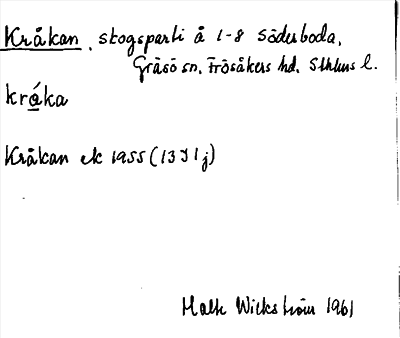 Kråkan, skogsparti å 1-8 Söderboda,
Gräsö sn, Frösåkers hd, Sthlms l.
kråka
Kråkan ek 1955 (13 I 1 j)
Wickström 1961